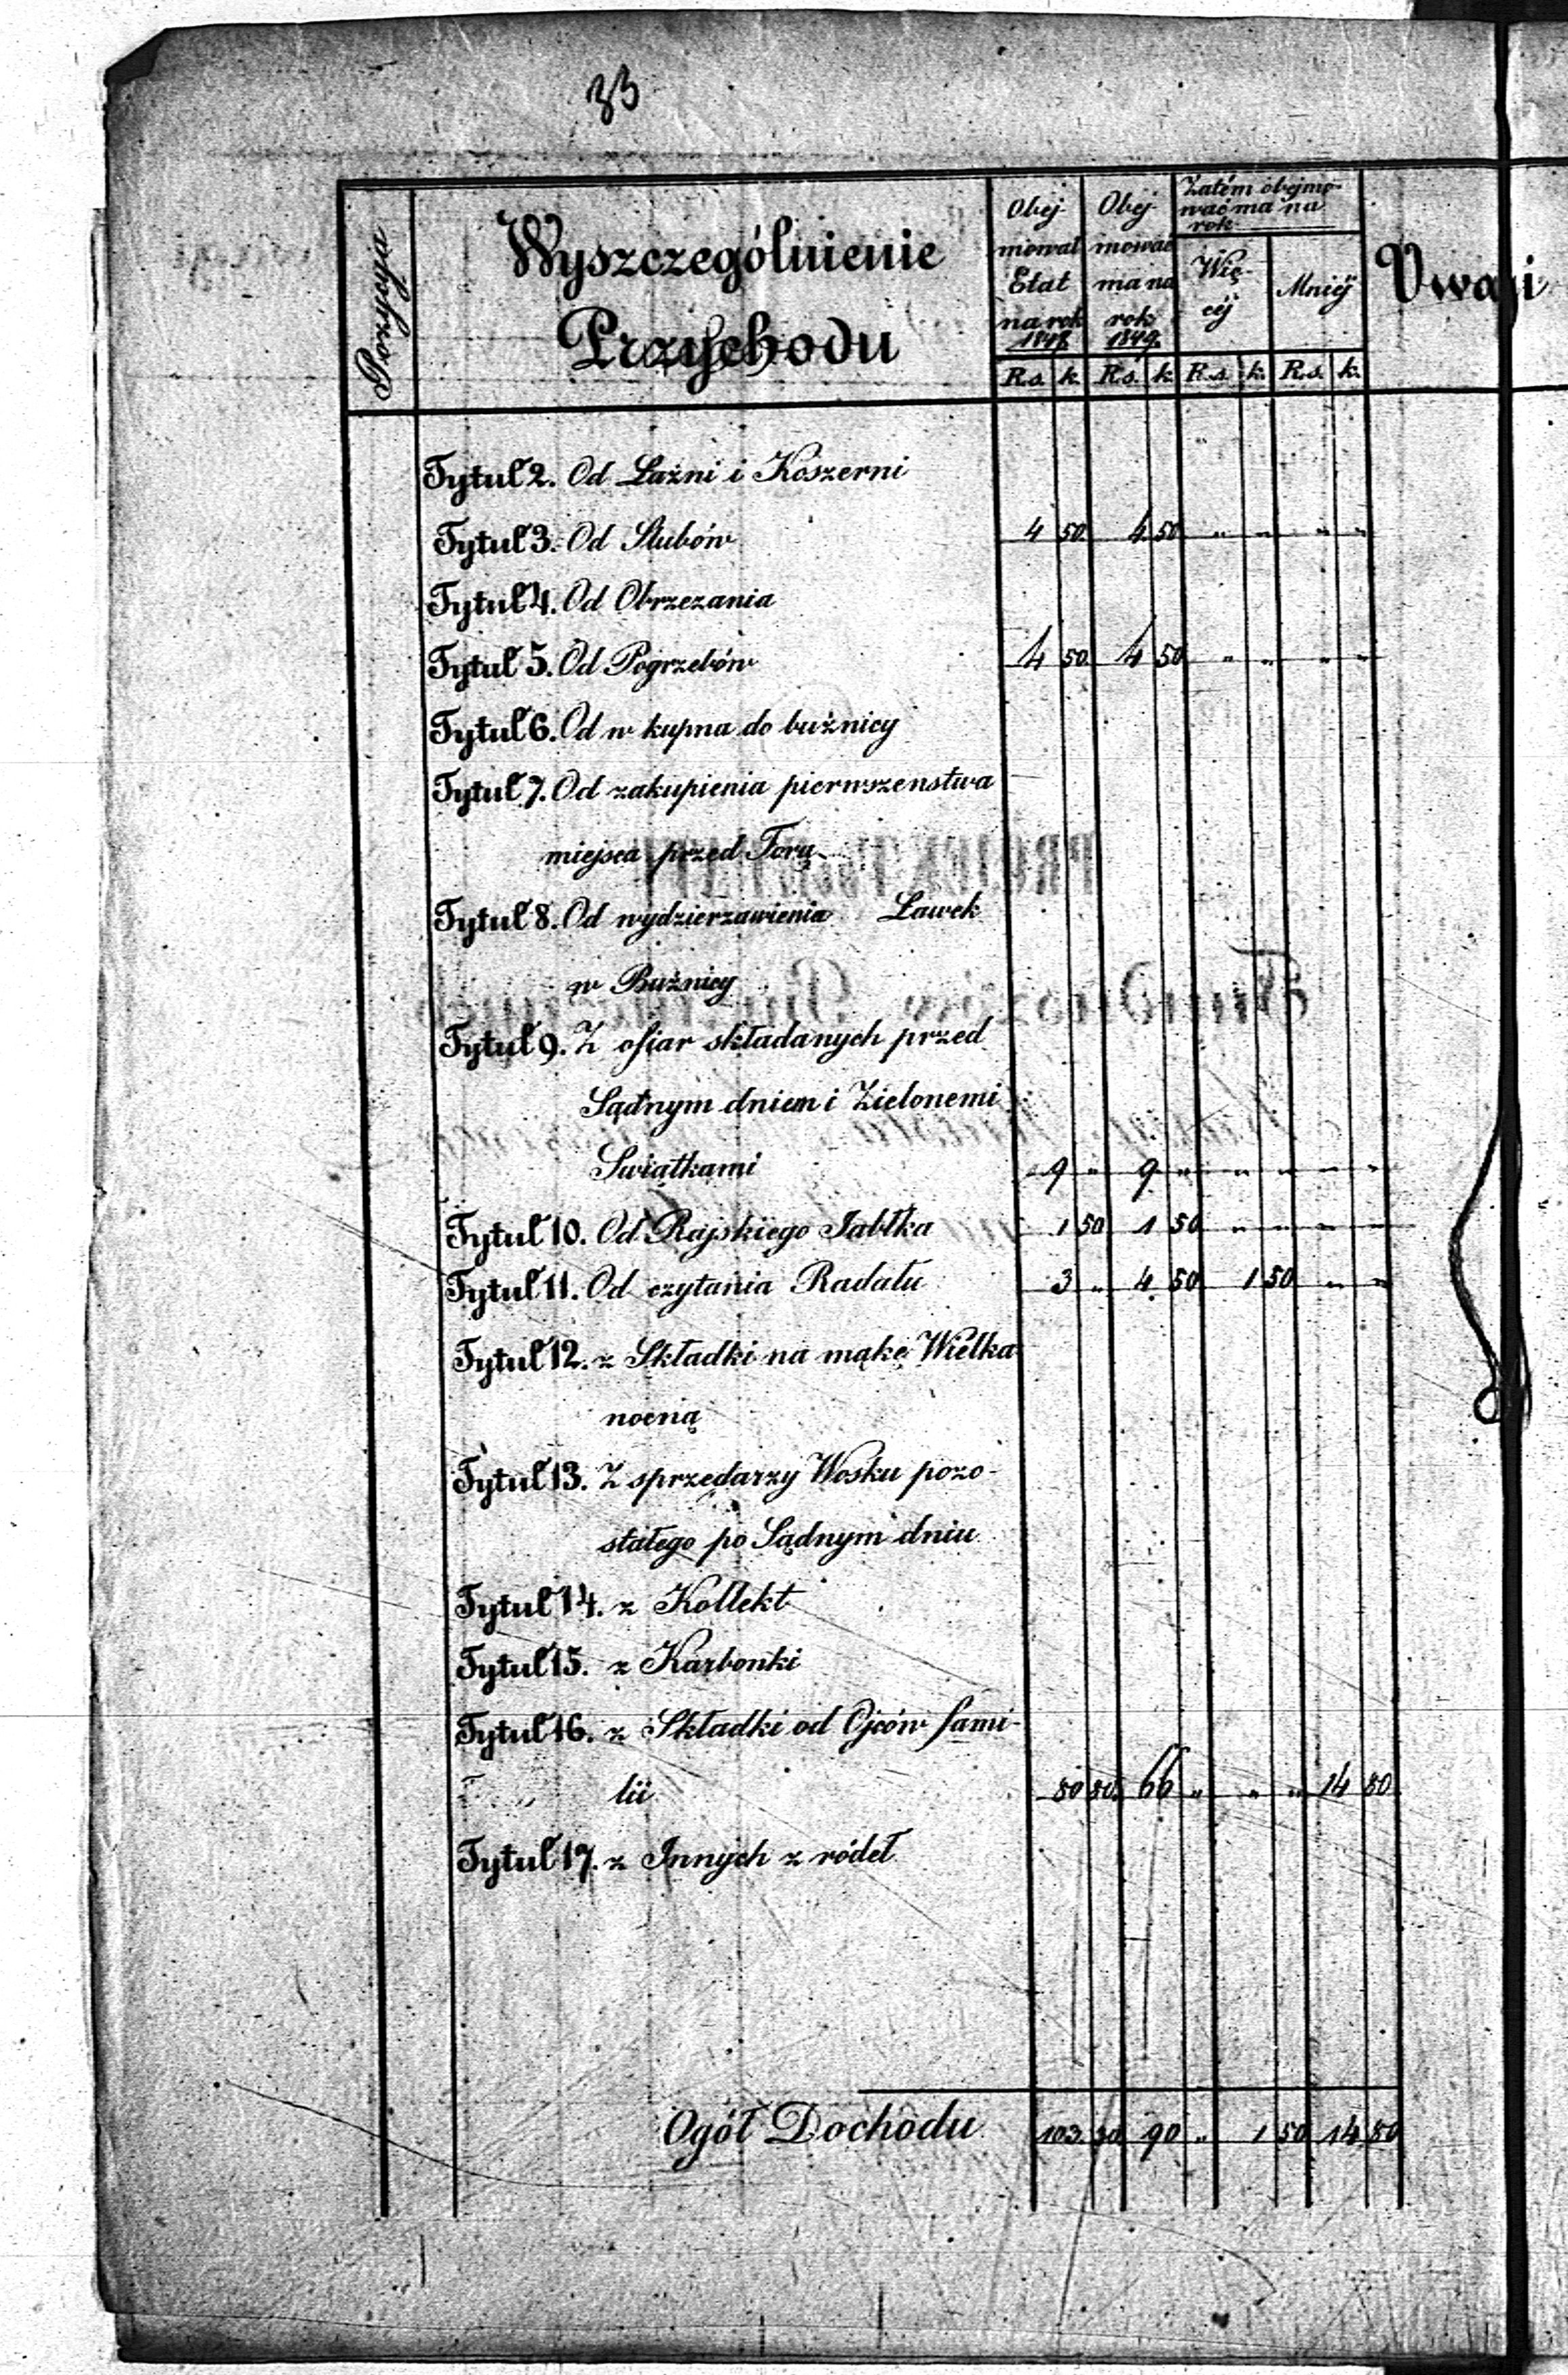 33
Pozycya
Wyszczególnienie
Przychodu
Obej-
mował
Etat
na rok
1848.
Obej-
mować
ma na
rok
1849.
Zatém obejmo-
wać ma na
rok
Wię-
céj
Mniéj
Uwagi
R.s. k. R.s. k. R.s. k. R.s. k.
Tytuł 2. Od Łaźni i Koszerni
Tytuł 3. Od Slubów 4 50 4 50 " " " "
Tytuł 4. Od Obrzezania
Tytuł 5. Od Pogrzebów 4 50 4 50 " " " "
Tytuł 6. Od w kupna do bużnicy
Tytuł 7. Od zakupienia pierwszenstwa
miejsca przed Torą
Tytuł 8. Od wydzierzawienia Ławek
w Bużnicy
Tytuł 9. Z ofiar składanych przed
Sądnym dniem i Zielonemi
Swiątkami 9 " 9 " " " " "
Tytuł 10. Od Rajskiego Jabłka 1 50 1 50 " " " "
Tytuł 11. Od czytania Radału 3 " 4 50 1 50 " "
Tytuł 12. z Składki na mąkę Wielka
nocną
Tytuł 13. Z sprzedarzy Wosku pozo-
stałego po Sądnym dniu
Tytuł 14. z Kollekt
Tytuł 15. z Karbonki
Tytuł 16. z Składki od Ojców fami-
lii 80 80. 66 " " " 14 80
Tytuł 17. z Innych z ródeł
Ogół Dochodu 103 30 90 " 1 50 14 80